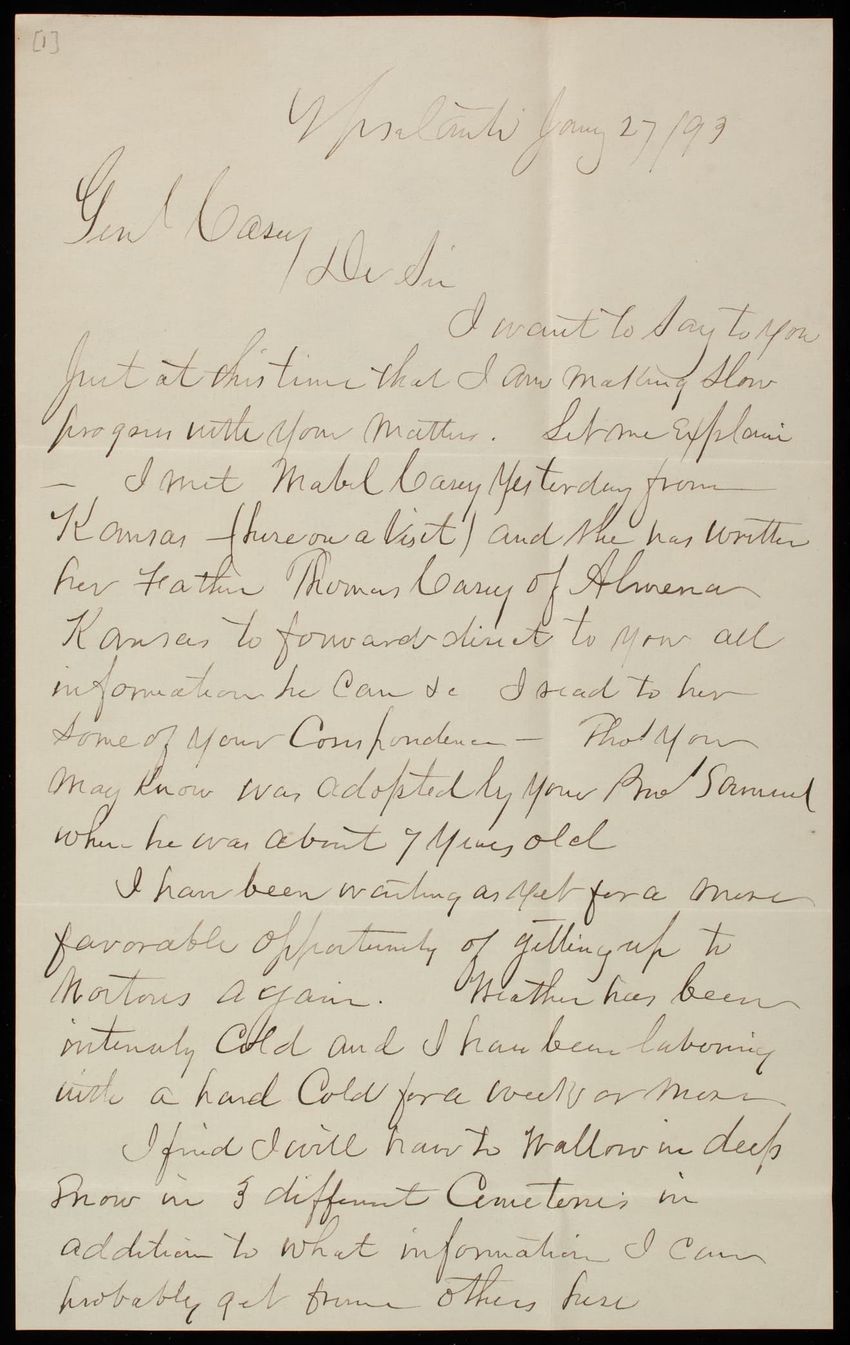 [1]
Ypsilanti Jany 27/93
Genl Casey
Dr Sir
I want to say to you
just at this time that I am making slow
progress with your matters. Let me explain
— I met Mabel Casey yesterday from
Kansas — (here on a visit) and she has written
her Father Thomas Casey of Almena
Kansas to forward direct to you all
information he can &c I read to her
some of your Correspondence — Thos you
may know was adopted by your Bro Samuel
when he was about 7 years old
I have been waiting as yet for a more
favorable opportunity of getting up to
Nortons again. Weather has been
intensely Cold and I have been laboring
with a hard Cold for a week or more
I find I will have to wallow in deep
snow in 3 different Cemeteries in
addition to what information I can
probably get from others here